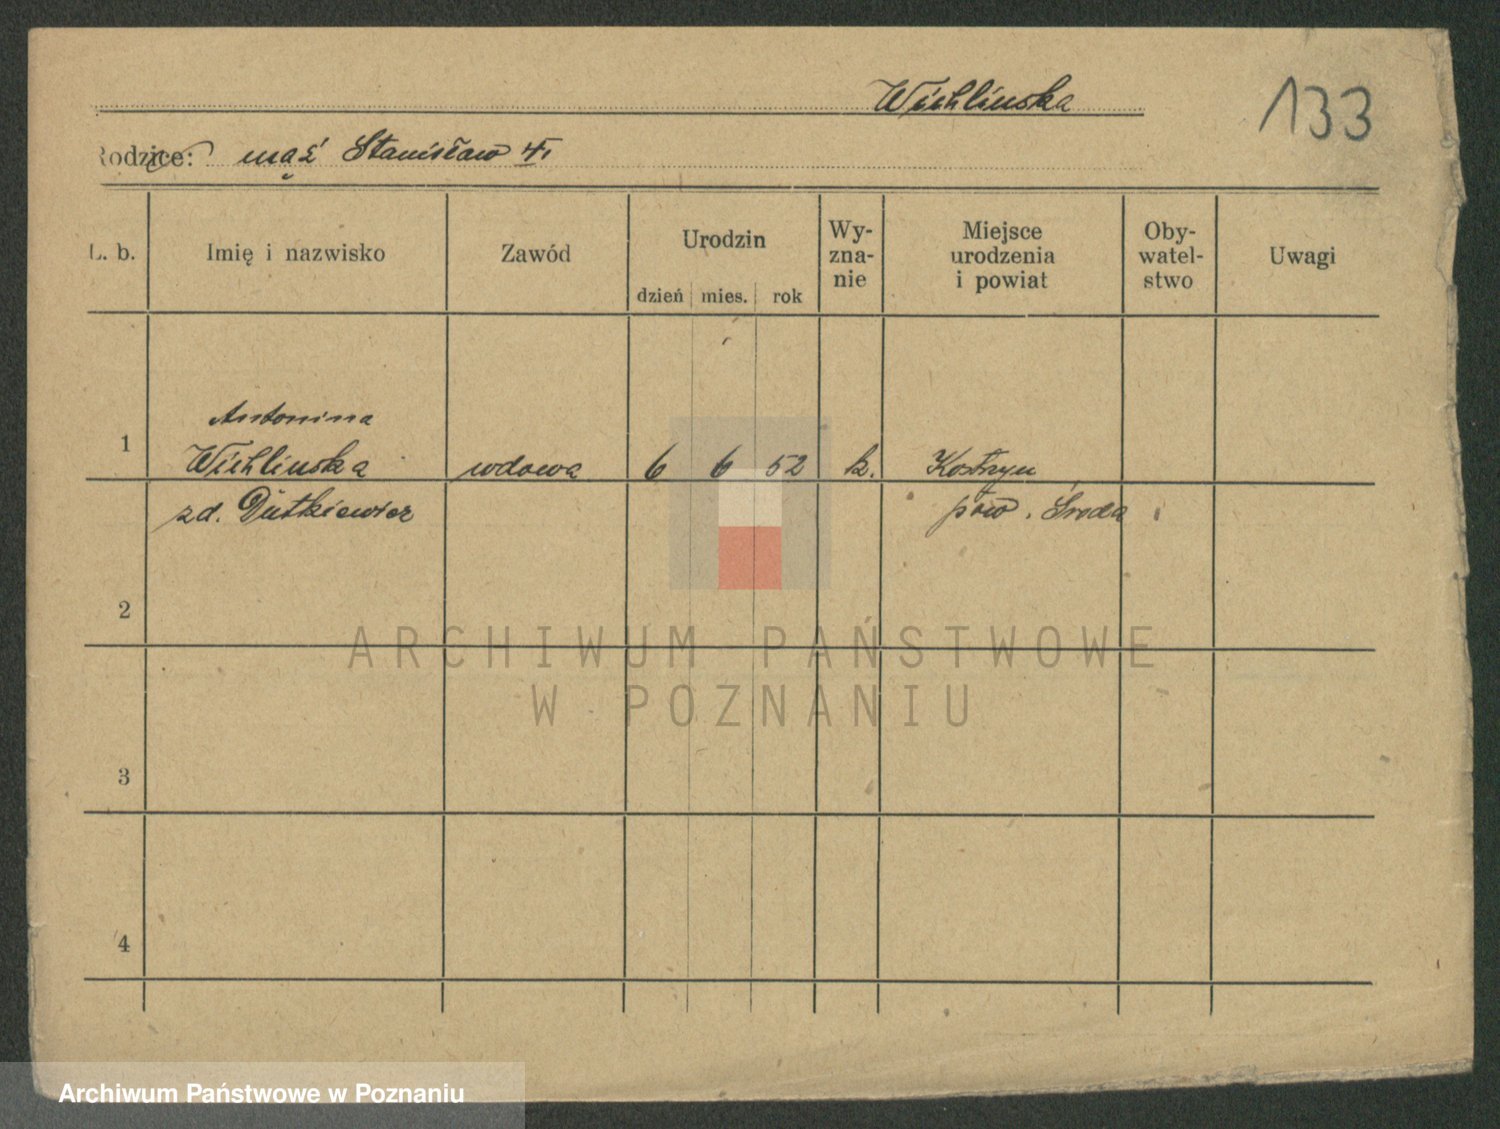 Wichlinska
133
Rodzice: mąż Stanisław
L. b. Imię i nazwisko Zawód Urodzin Wy- Miejsce Oby- Uwagi
zna- urodzenia watel-
nie i powiat stwo
dzień mies. rok
Antonina
1 Wichlinska wdowa 6 6 52 k. Kostrzyn
zd. Dutkiewicz pow. Środa
2
ARCHIWUM PAŃSTWOWE
W POZNANIU
3
4
Archiwum Państwowe w Poznaniu